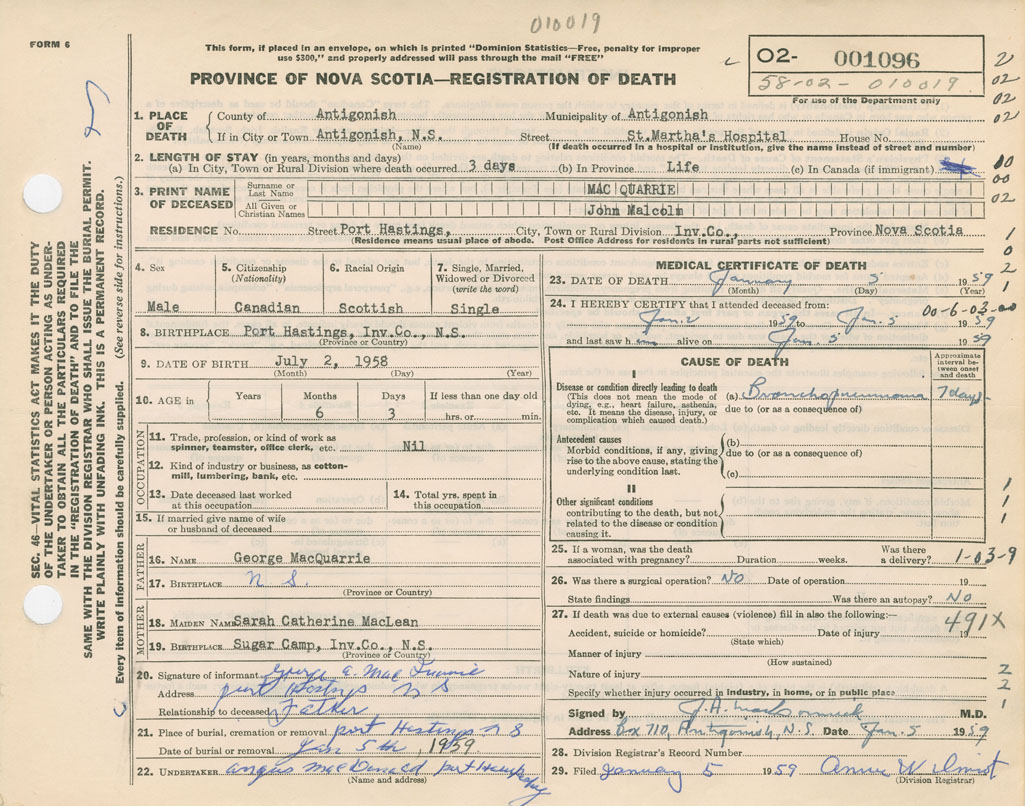 010019
FORM 6
This form, if placed in an envelope, on which is printed "Dominion Statistics—Free, penalty for improper
use $300," and properly addressed will pass through the mail "FREE"
PROVINCE OF NOVA SCOTIA—REGISTRATION OF DEATH
O2- 001096
58-02-010019
For use of the Department only
SEC. 46—VITAL STATISTICS ACT MAKES IT THE DUTY
OF THE UNDERTAKER OR PERSON ACTING AS UNDER-
TAKER TO OBTAIN ALL THE PARTICULARS REQUIRED
IN THE "REGISTRATION OF DEATH" AND TO FILE THE
SAME WITH THE DIVISION REGISTRAR WHO SHALL ISSUE THE BURIAL PERMIT.
WRITE PLAINLY WITH UNFADING INK. THIS IS A PERMANENT RECORD.
Every item of information should be carefully supplied. (See reverse side for instructions.)
1. PLACE OF DEATH
County of Antigonish Municipality of Antigonish
If in City or Town Antigonish, N.S. Street St.Martha's Hospital House No.
(Name) (If death occurred in a hospital or institution, give the name instead of street and number)
2. LENGTH OF STAY (in years, months and days)
(a) In City, Town or Rural Division where death occurred 3 days (b) In Province Life (c) In Canada (if immigrant)
3. PRINT NAME OF DECEASED
Surname or Last Name MAC QUARRIE
All Given or Christian Names John Malcolm
RESIDENCE No. Street Port Hastings, City, Town or Rural Division Inv.Co., Province Nova Scotia
(Residence means usual place of abode. Post Office Address for residents in rural parts not sufficient)
4. Sex
Male
5. Citizenship (Nationality)
Canadian
6. Racial Origin
Scottish
7. Single, Married, Widowed or Divorced (write the word)
Single
8. BIRTHPLACE Port Hastings, Inv.Co., N.S.
(Province or Country)
9. DATE OF BIRTH July 2, 1958
(Month) (Day) (Year)
10. AGE in Years Months Days If less than one day old
6 3 hrs. or min.
OCCUPATION
11. Trade, profession, or kind of work as
spinner, teamster, office clerk, etc. Nil
12. Kind of industry or business, as cotton-
mill, lumbering, bank, etc.
13. Date deceased last worked
at this occupation
14. Total yrs. spent in
this occupation
15. If married give name of wife
or husband of deceased
FATHER
16. NAME George MacQuarrie
17. BIRTHPLACE N. S.
(Province or Country)
MOTHER
18. MAIDEN NAME Sarah Catherine MacLean
19. BIRTHPLACE Sugar Camp, Inv.Co., N.S.
(Province or Country)
20. Signature of informant George A. Mac
Address port Hastings N S
Relationship to deceased Father
21. Place of burial, cremation or removal port Hastings N S
Date of burial or removal Jan 5th, 1959
22. UNDERTAKER angus macDonald port
(Name and address)
MEDICAL CERTIFICATE OF DEATH
23. DATE OF DEATH January 5 1959
(Month) (Day) (Year)
24. I HEREBY CERTIFY that I attended deceased from: 00-6-03-00
Jan. 2 1959 to Jan. 5 1959
and last saw him alive on Jan. 5 1959
CAUSE OF DEATH
Approximate interval between onset and death
I
Disease or condition directly leading to death
(This does not mean the mode of
dying, e.g., heart failure, asthenia,
etc. It means the disease, injury, or
complication which caused death.)
(a) Bronchopneumonia 7 days
due to (or as a consequence of)
Antecedent causes
Morbid conditions, if any, giving
rise to the above cause, stating the
underlying condition last.
(b)
due to (or as a consequence of)
(c)
II
Other significant conditions
contributing to the death, but not
related to the disease or condition
causing it.
25. If a woman, was the death
associated with pregnancy? Duration weeks. Was there
a delivery? 1-03-9
26. Was there a surgical operation? No Date of operation 19
State findings Was there an autopsy? No
27. If death was due to external causes (violence) fill in also the following:—
491X
Accident, suicide or homicide? Date of injury 19
(State which)
Manner of injury
(How sustained)
Nature of injury
Specify whether injury occurred in industry, in home, or in public place
Signed by J.A. MacCormick M.D.
Address Box 710, Antigonish, N.S. Date Jan. 5 1959
28. Division Registrar's Record Number
29. Filed January 5 1959 Annie Wilmot
(Division Registrar)
2
02
02
02
10
00
02
1
0
2
1
1
1
1
2
2
1